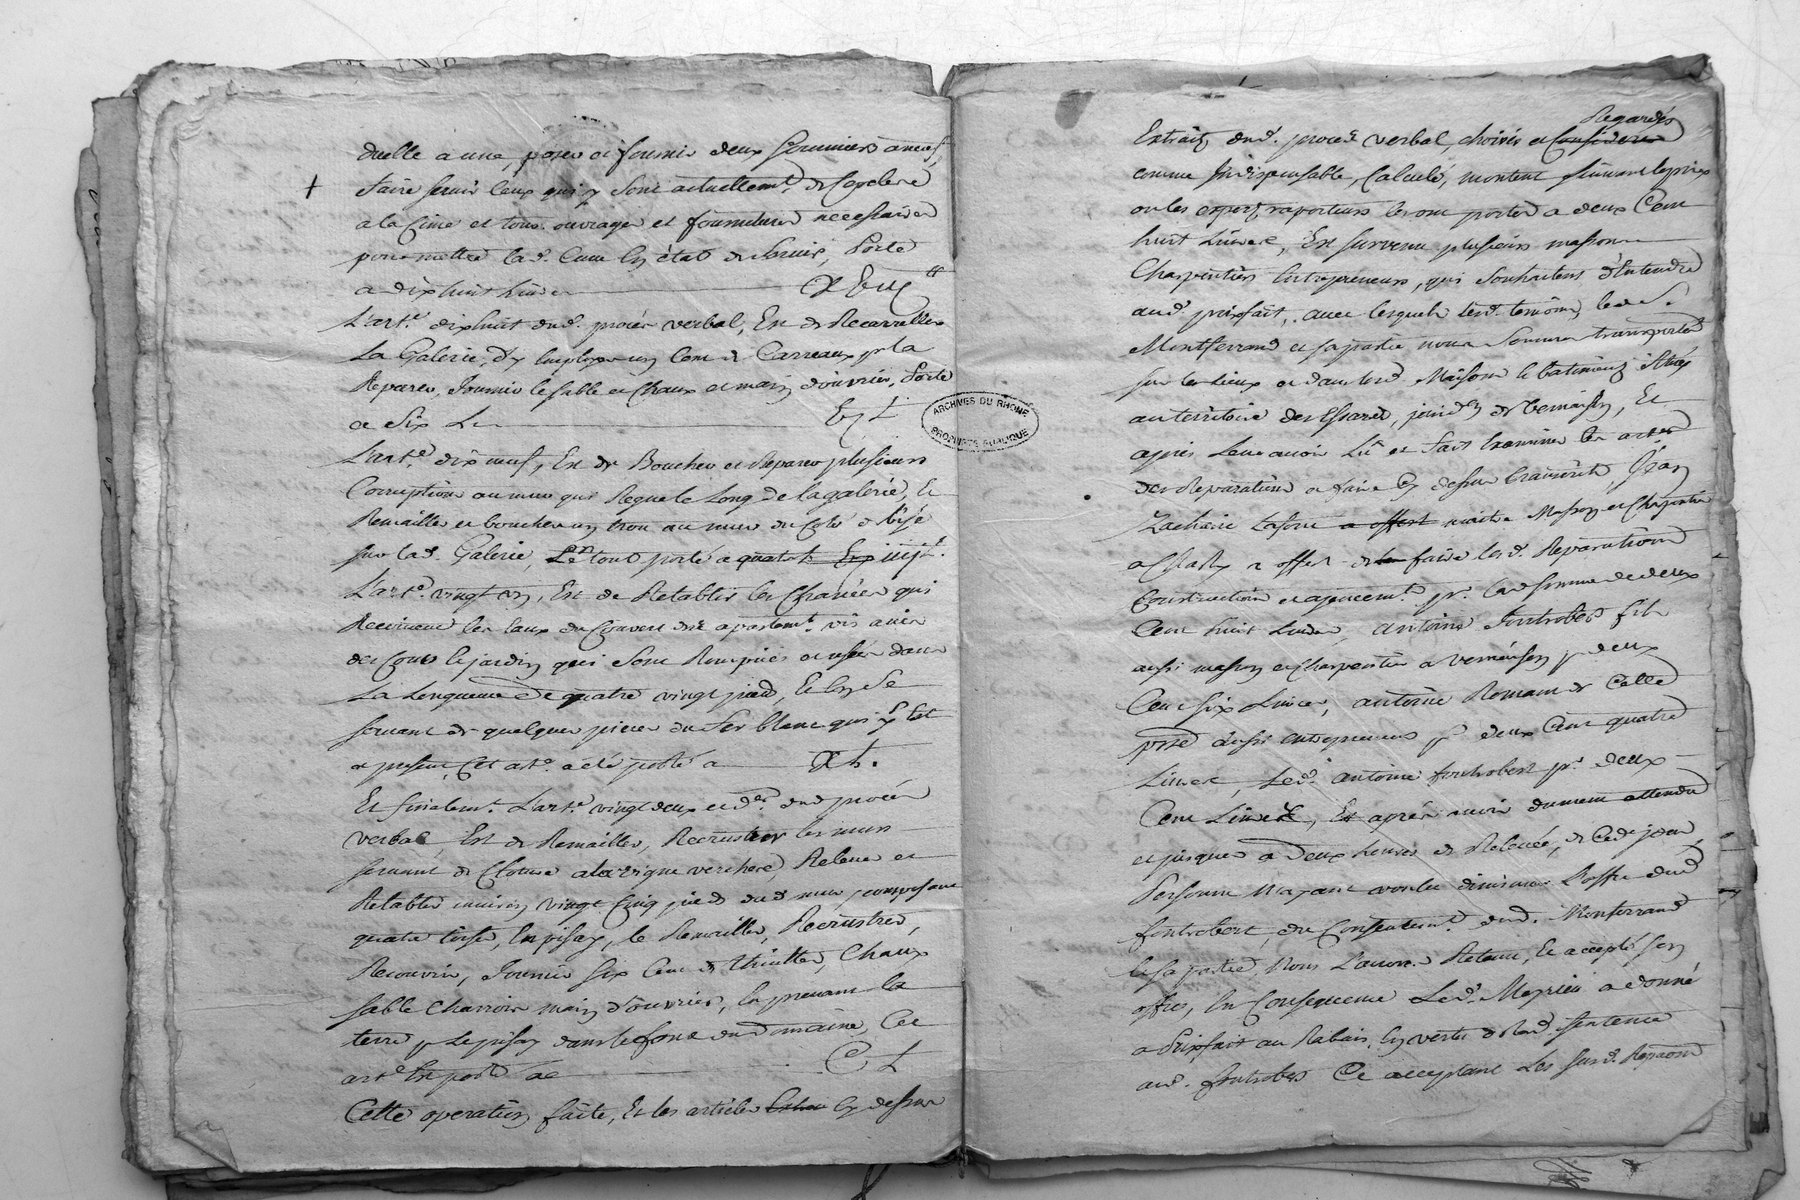 duelle a une, poser et fournir deux sommiers a neuf,
faire servir ceux qui y sont actuellemt. de
a la Cime et tous ouvrages et fournitures necessaires
pour mettre lad. Cuve en état de servir, Porté
a dix huit Livres
L'arte. dixhuit dud. procès verbal, Est de Recarreller
La Galerie, d'y employer un Cent de Carreaux pr. la
Reparer, fournir le sable et Chaux et main d'ouvrier, Porté
a six L
L'arte. dix neuf, Est de Boucher et Reparer plusieurs
Corruptions au mur qui Regne le Long de la galerie, Et
Remailler et boucher un trou au mur du Coté de bise
sur lad. Galerie, Le tout porté a
L'arte. vingt un, Est de Retablir les Chanées qui
Recoivent les Eaux du Couvert des apartemts. vis a vis
des Cour le jardin qui sont Rompües et usées dans
La Longueur de quatre vingt pied, Et en se
servant de quelques pieces du fer blanc qui y Est
a present, Cet arte. a été porté a
Et finalemt. L'arte. vingt deux et der. dud. procès
verbal Est de Remailler, Recruster les murs
servant de Cloture a la vigne verchere, Relever et
Retablir environ vingt Cinq pieds dud. mur, composant
quatre toises, En pisay, le Remailler, Recruster,
Recouvrir, fournir six Cent de thuilles, Chaux
sable Charrois main d'ouvrier, En prenant la
terre pr. Le pisay dans le fond du domaine, Cet
arte. Est porté a C L
Cette operation faite, Et les articles cy dessus
ARCHIVES DU RHONE
PROPRIETE PUBLIQUE
Regardés
Extraits dud. procès verbal, choisis et Considerés
comme Indispensable, Calculé, montent suivant le prix
ou les experts raporteurs les ont portés a deux Cent
huit Livres, Est survenu plusieurs massons
Charpentiers Entrepreneurs, qui souhaitent d'Entendre
aud. prixfait, avec lesquels lesd. temoins, led. Sr.
Montferrand et sa partie nous sommes transportés
sur les Lieux et dans lesd. Maisons et batiments situés
au territoire des Essarts, paroisse de Vernaison, Et
apres Leur avoir Lu et fait Examiner les artes.
des Reparations a faire cy dessus transcrit Jean
Zacharie a offert maitre Masson et Charpentier
a a offert de faire lesd. Reparations
Construction et agencemt. pr. la somme de deux
Cent huit Livres, antoine fontrobert fils
aussi masson et charpentier a vernaison pr. deux
Cent six Livres, antoine Romain de Celle
aussi entrepreneur pr. deux Cent quatre
Livres, Led. antoine fontrobert pr. deux
Cent Livres, Et après avoir dument attendu
et jusques a deux heures de Relevée, de Ced. jour,
Personne N'ayant voulu diminuer L'offre dud.
fontrobert, du Consentemt. dud. Montferrand
et sa partie, Nous L'avons Retenu, Et accepté son
offre, En Consequence Led. Meprieu a donné
a Prixfait au Rabais, En vertu de lad. sentence
aud. fontrobert Ce acceptant Les susd. Reparons